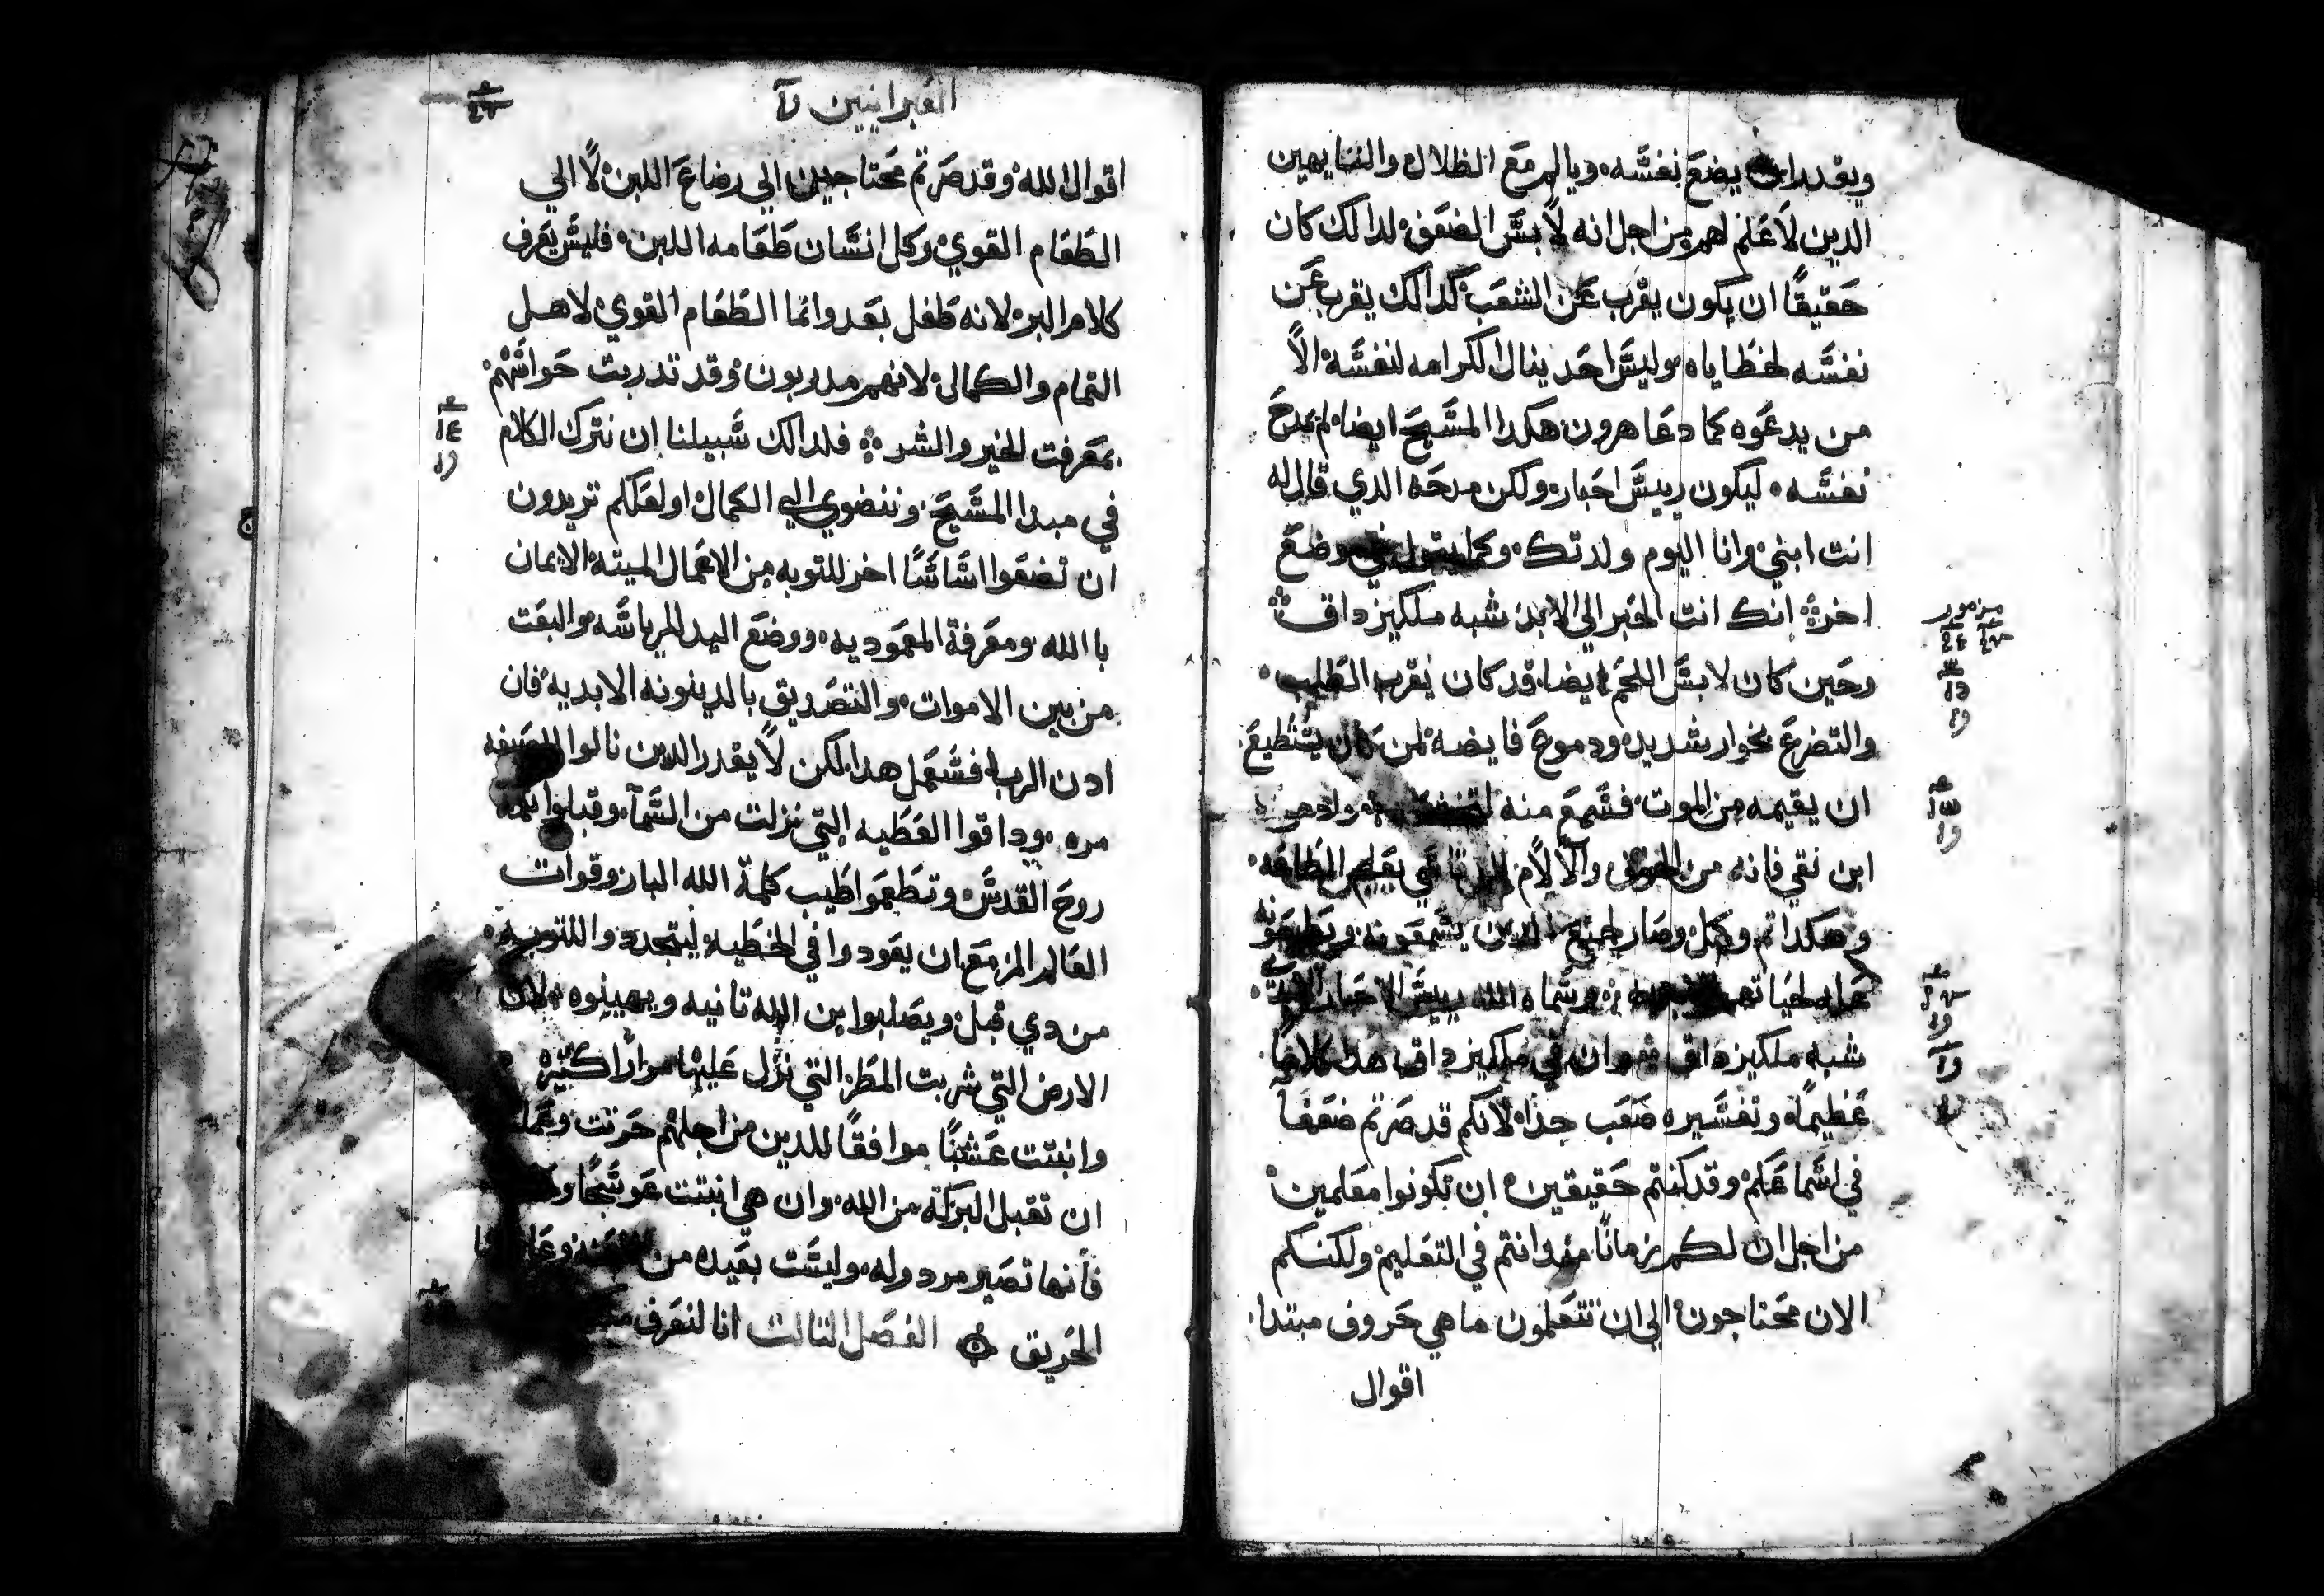 ويقدر ان يضع نفسه ويالم مع الظلال والتايهين
الدين لا علم لهم من اجل انه لابس الضعف لدالك كان
حقيقًا ان يكون يقرب عن الشعب كدالك يقرب عن
نفسه لخطاياه وليس احد ينال الكرامه لنفسه الا
من يدعوه كما دعا هرون هكدا المسيح ايضا لم يمدح
نفسه ليكون رييس احبار ولكن مدحه الدي قال له
انت ابني وانا اليوم ولدتك وكما يقول في موضع
اخر انك انت الحبر الي الابد شبه ملكيزداق
وحين كان لابس اللحم ايضا قد كان يقرب الطلب
والتضرع بخوار شديد ودموع فايضه لمن كان يستطيع
ان يقيمه من الموت فسمع منه
ابن نقي فانه من الخوف والالام الطاعه
وهكدا تم وكمل وصار لجميع الدين يسمعونه ويطيعونه
وسماه الله رييس الاحبار
شبه ملكيزداق وان في ملكيزداق هدا كلامًا
عظيمًا وتفسيره صعب جدًا لانكم قد صرتم ضعفا
في اسماعكم وقد كنتم حقيقين ان تكونوا معلمين
من اجل ان لكم زمانًا مند انتم في التعليم ولكنكم
الان محتاجون الي ان تتعلمون ما هي حروف مبتدا
اقوال
مزمور
العبرانيين
اقوال الله وقد صرتم محتاجين الي رضاع اللبن لا الي
الطعام القوي وكل انسان طعامه اللبن فليس يعرف
كلام البر لانه طفل بعد وانما الطعام القوي لاهل
التمام والكمال لانهم مدربون وقد تدربت حواسهم
بمعرفت الخير والشر فلدالك سبيلنا ان نترك الكلام
في مبدا المسيح وننضوي الي الكمال او لعلكم تريدون
ان تضعوا اساسًا اخر للتوبه من الاعمال الميته الايمان
با الله ومعرفة المعموديه ووضع اليد للرياسه والبعت
من بين الاموات والتصديق بالدينونه الابديه فان
ادن الرب فسنعمل هدا لكن لا يقدر الدين نالوا الصبغه
مره وداقوا العطيه التي نزلت من السما وقبلوا
روح القدس وتطعموا طيب كلمة الله الباره وقوات
العالم المزمع ان يعودوا في الخطيه ليتجددوا للتوبه
من دي قبل ويصلبوا ابن الله تانيه ويهينوه لان
الارض التي شربت المطر التي نزل عليها مرارًا كتيره
وانبتت عشبًا موافقًا للدين من اجلهم حرتت وعملت
ان تقبل البركة من الله وان هي انبتت عوسجًا
فانها تصير مردوله وليست بعيده من
الحريق الفصل التالت انا لنعرف